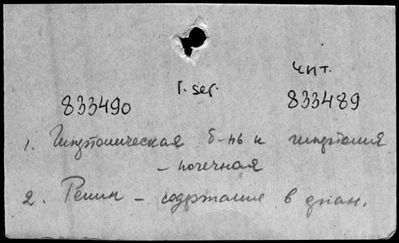 чит.
г. ser.
833490 833489
1. Гипертоническая б-нь и гипертония
- почечная
2. Ренин - содержание в диаг.